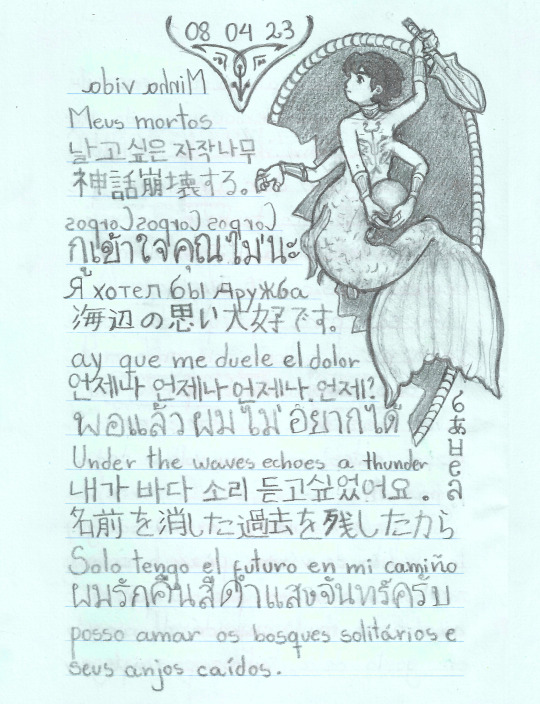 08 04 23
Minha vida.
Meus mortos
날고 싶은 자작나무
神話崩壊する。
Corpos Corpos Corpos
กูเข้าใจคุณไม่นะ
Я хотел бы дружба
海辺の思い大好です。
ay que me duele el dolor
언제나 언제나 언제나. 언제?
พอแล้ว ผมไม่อยากได้
Under the waves echoes a thunder
내가 바다 소리 듣고싶었어요.
名前を消した過去を残したから
Solo tengo el futuro en mi camiño
ผมรักคืนสีดำแสงจันทร์ครับ
posso amar os bosques solitários e
seus anjos caídos.